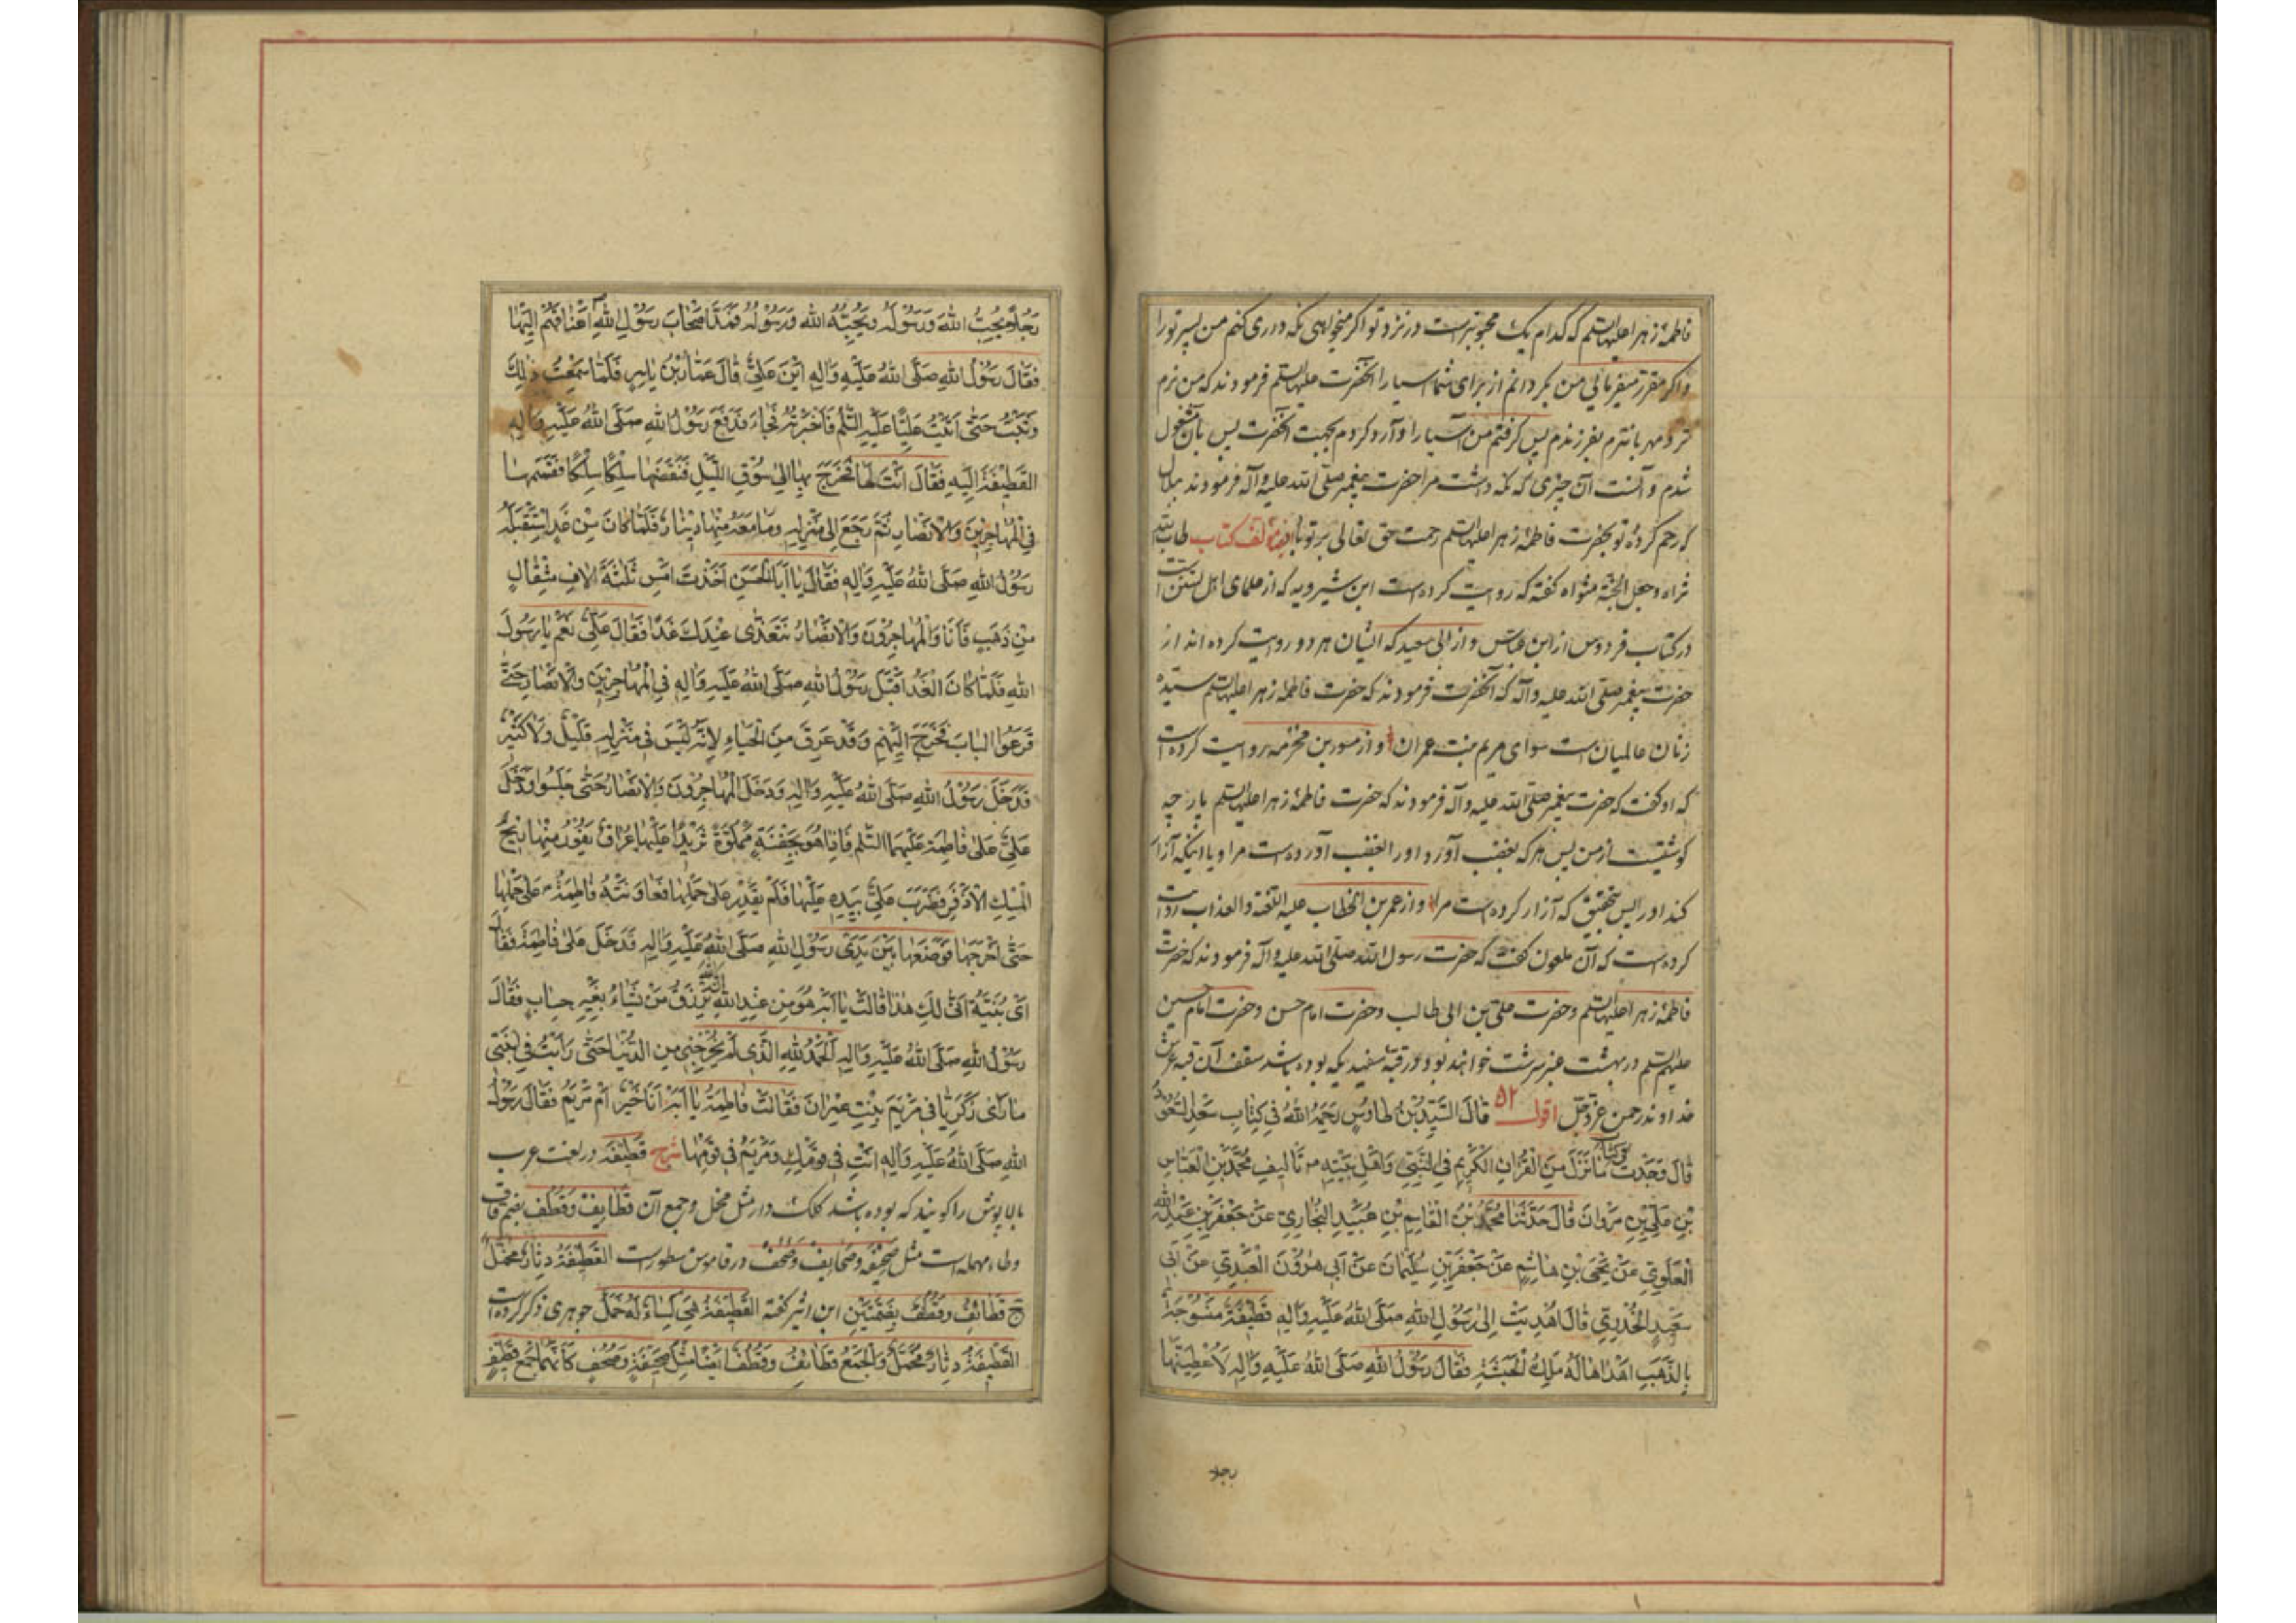 فاطمهٔ زهرا علیها السلم که کدام یک محبوبترست در نزد تو اکر میخواهی نکه داری کنم من پسر تو را
و اکر مقرر میفرمائی من بکردانم از برای شما آسیا را آنحضرت علیها السلم فرمودند که من نرم
تر و مهربانترم بفرزندم پس کرفتم من آسیا را و آرد کردم بجهت آنحضرت پس بآن مشغول
شدم و آنست آن چیزی که نکه داشت مرا حضرت پیغمبر صلی الله علیه و آله فرمودند ببلال
که رحم کردهٔ تو بحضرت فاطمهٔ زهرا علیها السلم رحمت حق تعالی بر تو باد مؤلف کتاب طاب الله
ثراه و جعل الجنة مثواه کفته که روایت کرده است ابن شیرویه که از علمای اهل تسنن است
در کتاب فردوس از ابن عباس و از ابی سعید که ایشان هر دو روایت کرده اند از
حضرت پیغمبر صلی الله علیه و آله که آنحضرت فرمودند که حضرت فاطمهٔ زهرا علیها السلم سیدهٔ
زنان عالمیان است سوای مریم بنت عمران و از مسور بن مخرمه روایت کرده است
که او کفت که حضرت پیغمبر صلی الله علیه و آله فرمودند که حضرت فاطمهٔ زهرا علیها السلم پارچه
کوشتیست از من پس هر که بغضب آورد او را بغضب آورده است مرا و یا اینکه آزار
کند او را پس بتحقیق که آزار کرده است مرا و از عمر بن الخطاب علیه اللعنة و العذاب روایت
کرده است که آن ملعون کفت که حضرت رسول الله صلی الله علیه و آله فرمودند که حضرت
فاطمهٔ زهرا علیها السلم و حضرت علی بن ابی طالب و حضرت امام حسن و حضرت امام حسین
علیهم السلم در بهشت عنبر سرشت خواهند بود در قبهٔ سفیدیکه بوده باشد سقف آن قبه عرش
خداوند رحمن عز و جل اقول ٥٢ قال السيد بن طاوس رحمه الله في كتاب سعد السعود
قال وجدت في كتاب ما نزل من القرآن الكريم في النبي و اهل بيته تأليف محمد بن العباس
بن علي بن مروان قال حدثنا محمد بن القاسم بن عبيد البخاري عن جعفر بن عبد الله
العلوي عن يحيى بن هاشم عن جعفر بن سليمان عن ابي هرون العبدي عن ابي
سعيد الخدري قال اهديت الى رسول الله صلى الله عليه و اله قطيفة منسوجة
بالذهب اهداها له ملك الحبشة فقال رسول الله صلى الله عليه و اله لاعطينها
رجلا
رجلا يحب الله و رسوله و يحبه الله و رسوله فمد اصحاب رسول الله اعناقهم اليها
فقال رسول الله صلى الله عليه و اله اين علي قال عمار بن ياسر فلما سمعت ذلك
وثبت حتى اتيت عليا عليه السلم فاخبرته فجاء فدفع رسول الله صلى الله عليه و اله
القطيفة اليه فقال انت لها فخرج بها الى سوق الليل فنقضها سلكا سلكا فقسمها
في المهاجرين و الانصار ثم رجع الى منزله و ما معه منها دينار فلما كان من غد استقبله
رسول الله صلى الله عليه و اله فقال يا ابا الحسن اخذت امس ثلثة الاف مثقال
من ذهب فانا و المهاجرون و الانصار نتغدى عندك غدا فقال علي نعم يا رسول
الله فلما كان الغد اقبل رسول الله صلى الله عليه و اله في المهاجرين و الانصار حتى
قرعوا الباب فخرج اليهم و قد عرق من الحياء لانه ليس في منزله قليل و لا كثير
فدخل رسول الله صلى الله عليه و اله و دخل المهاجرون و الانصار حتى جلسوا و دخل
علي على فاطمة عليهما السلم فاذا هو بجفنة مملوة ثريدا عليها عراق يفور منها ريح
المسك الاذفر فضرب علي بيده عليها فلم يقدر على حملها فعاونته فاطمة على حملها
حتى اخرجها فوضعها بين يدي رسول الله صلى الله عليه و اله فدخل على فاطمة فقال
اي بنية انى لك هذا قالت يا ابه هو من عند الله ان الله يرزق من يشاء بغير حساب فقال
رسول الله صلى الله عليه و اله الحمد لله الذي لم يخرجني من الدنيا حتى رايت في ابنتي
ما راى زكريا في مريم بنت عمران فقالت فاطمة يا ابه انا خير ام مريم فقال رسول
الله صلى الله عليه و اله انت في قومك و مريم في قومها شرح قطيفه در لغت عرب
بالاپوش را کویند که بوده باشد کلک دار مثل مخمل و جمع آن قطایف و قطف بضم قاف
و طاء مهمله است مثل صحیفه و صحایف و صحف در قاموس مسطورست القطیفة دثار مخمل
ج قطائف و قطف بضمتین ابن اثیر کفته القطیفة هی کساء له خمل جوهری ذکر کرده است
القطیفة دثار مخمل و الجمع قطائف و قطف ایضا مثل صحیفة و صحف کانهما جمع قطیف